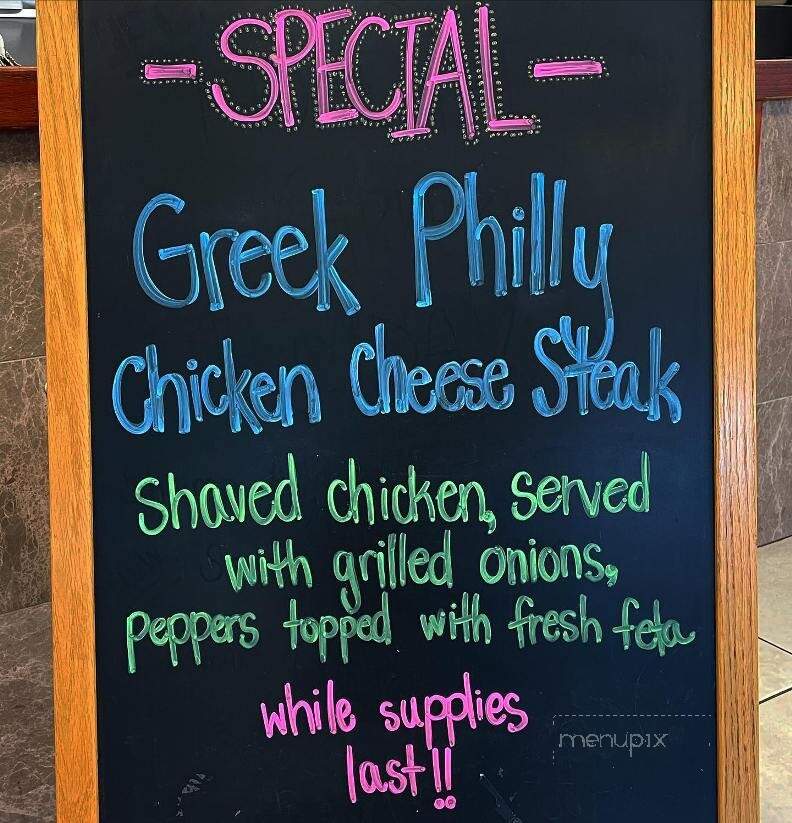 - SPECIAL -
Greek Philly
Chicken Cheese Steak
Shaved chicken, served
with grilled onions,
peppers topped with fresh feta
while supplies
last!!
menupix